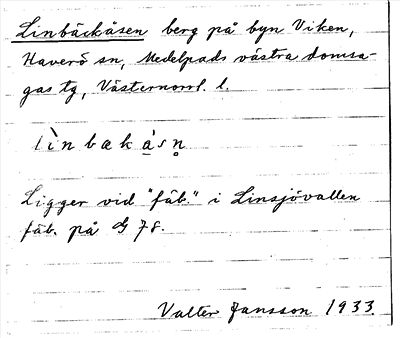 Linbäckåsen berg på byn Viken,
Haverö sn, Medelpads västra domsa-
gas tg, Västernorrl. l.
lìnbækå̀sn̥
Ligger vid "fäb." i Linsjövallen
fäb. på G 78.
Valter Jansson 1933.